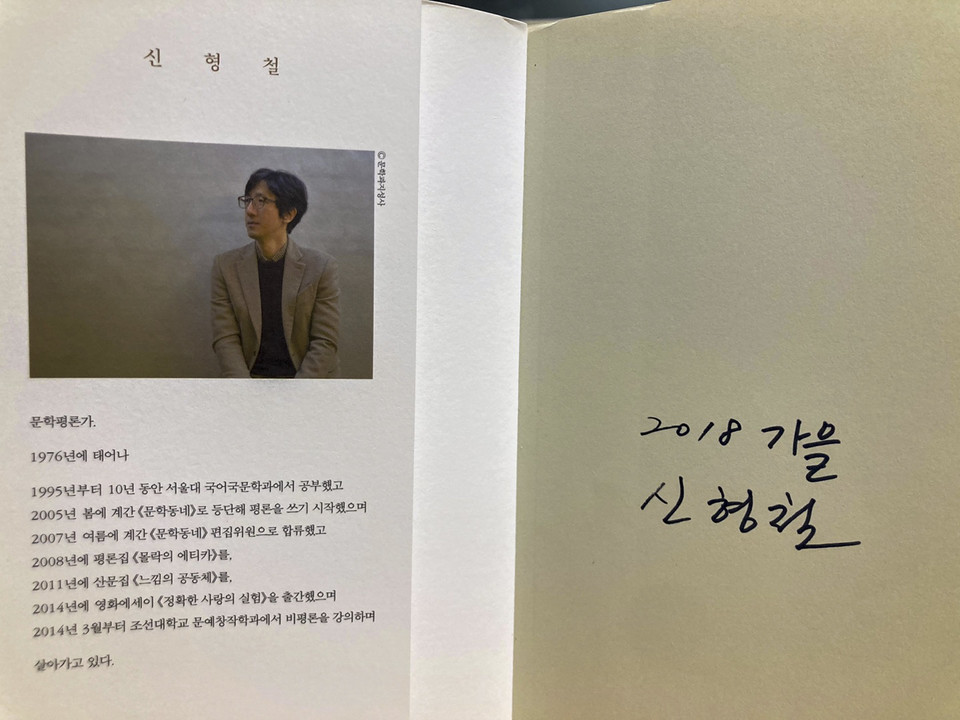 신 형 철
© 문학과지성사
문학평론가.
1976년에 태어나
1995년부터 10년 동안 서울대 국어국문학과에서 공부했고
2005년 봄에 계간 《문학동네》로 등단해 평론을 쓰기 시작했으며
2007년 여름에 계간 《문학동네》 편집위원으로 합류했고
2008년에 평론집 《몰락의 에티카》를,
2011년에 산문집 《느낌의 공동체》를,
2014년에 영화에세이 《정확한 사랑의 실험》을 출간했으며
2014년 3월부터 조선대학교 문예창작학과에서 비평론을 강의하며
살아가고 있다.
2018 가을
신형철